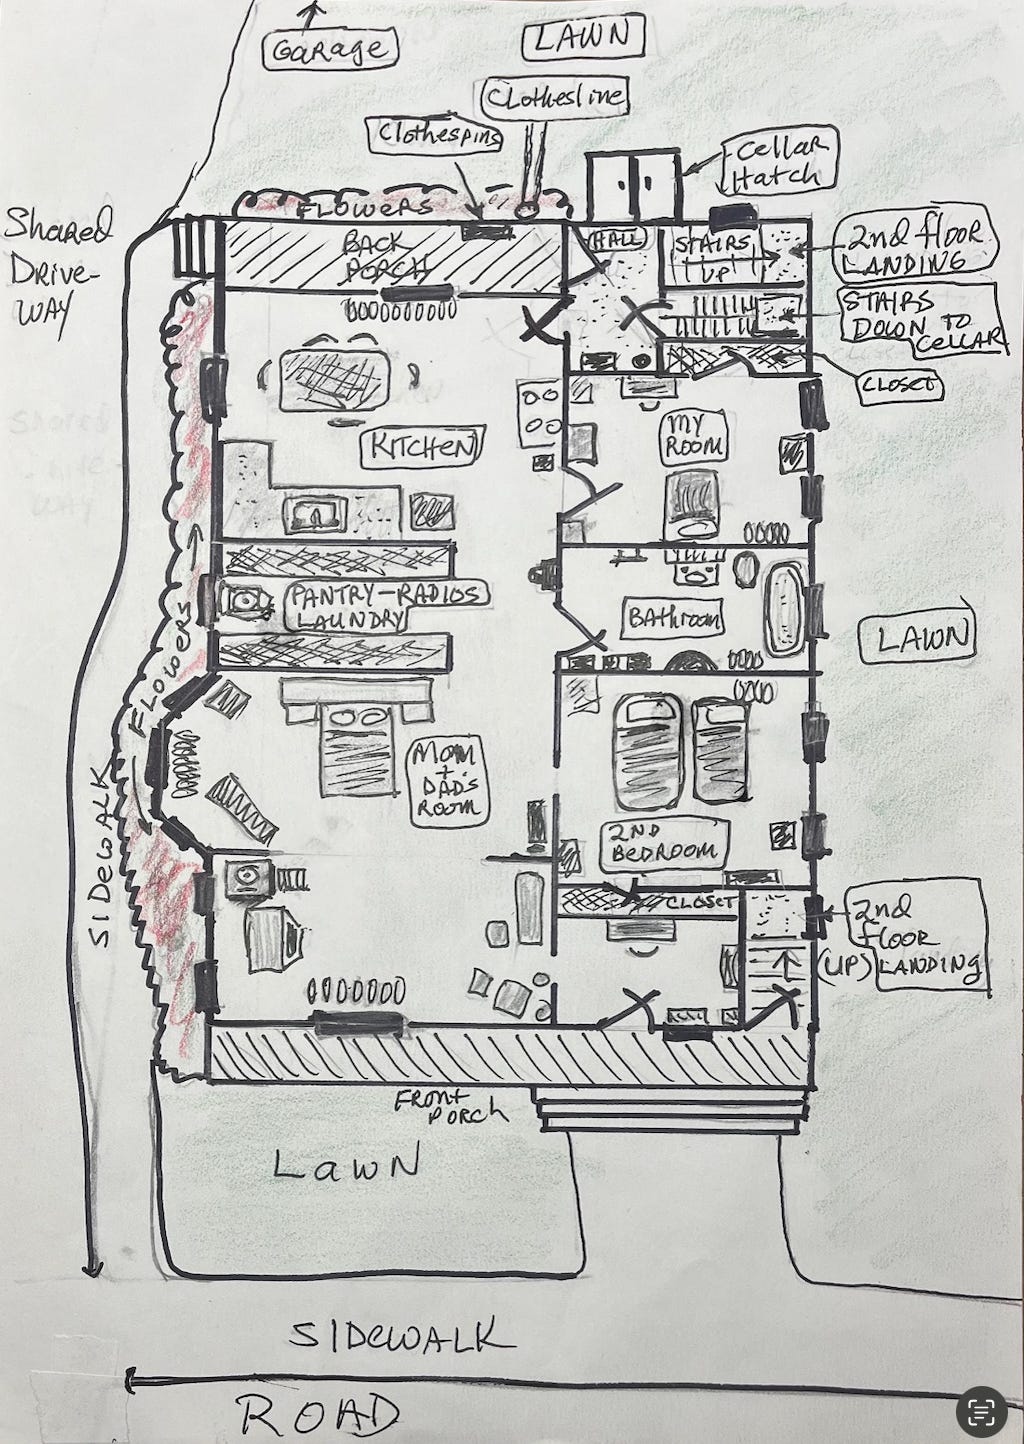 GARAGE
LAWN
Clothesline
Clothespins
Cellar
Hatch
Shared
DRIVE-
WAY
FLOWERS
BACK
PORCH
HALL
STAIRS
UP
2nd floor
LANDING
STAIRS
DOWN TO
CELLAR
CLOSET
KITCHEN
MY
ROOM
PANTRY-RADIOS
LAUNDRY
BAThroom
LAWN
FLOWERS
MOM
+
DAD'S
ROOM
2ND
BEDROOM
SIDEWALK
CLOSET
2nd
floor
(UP) LANDING
FRONT
PORCH
LAWN
SIDEWALK
ROAD